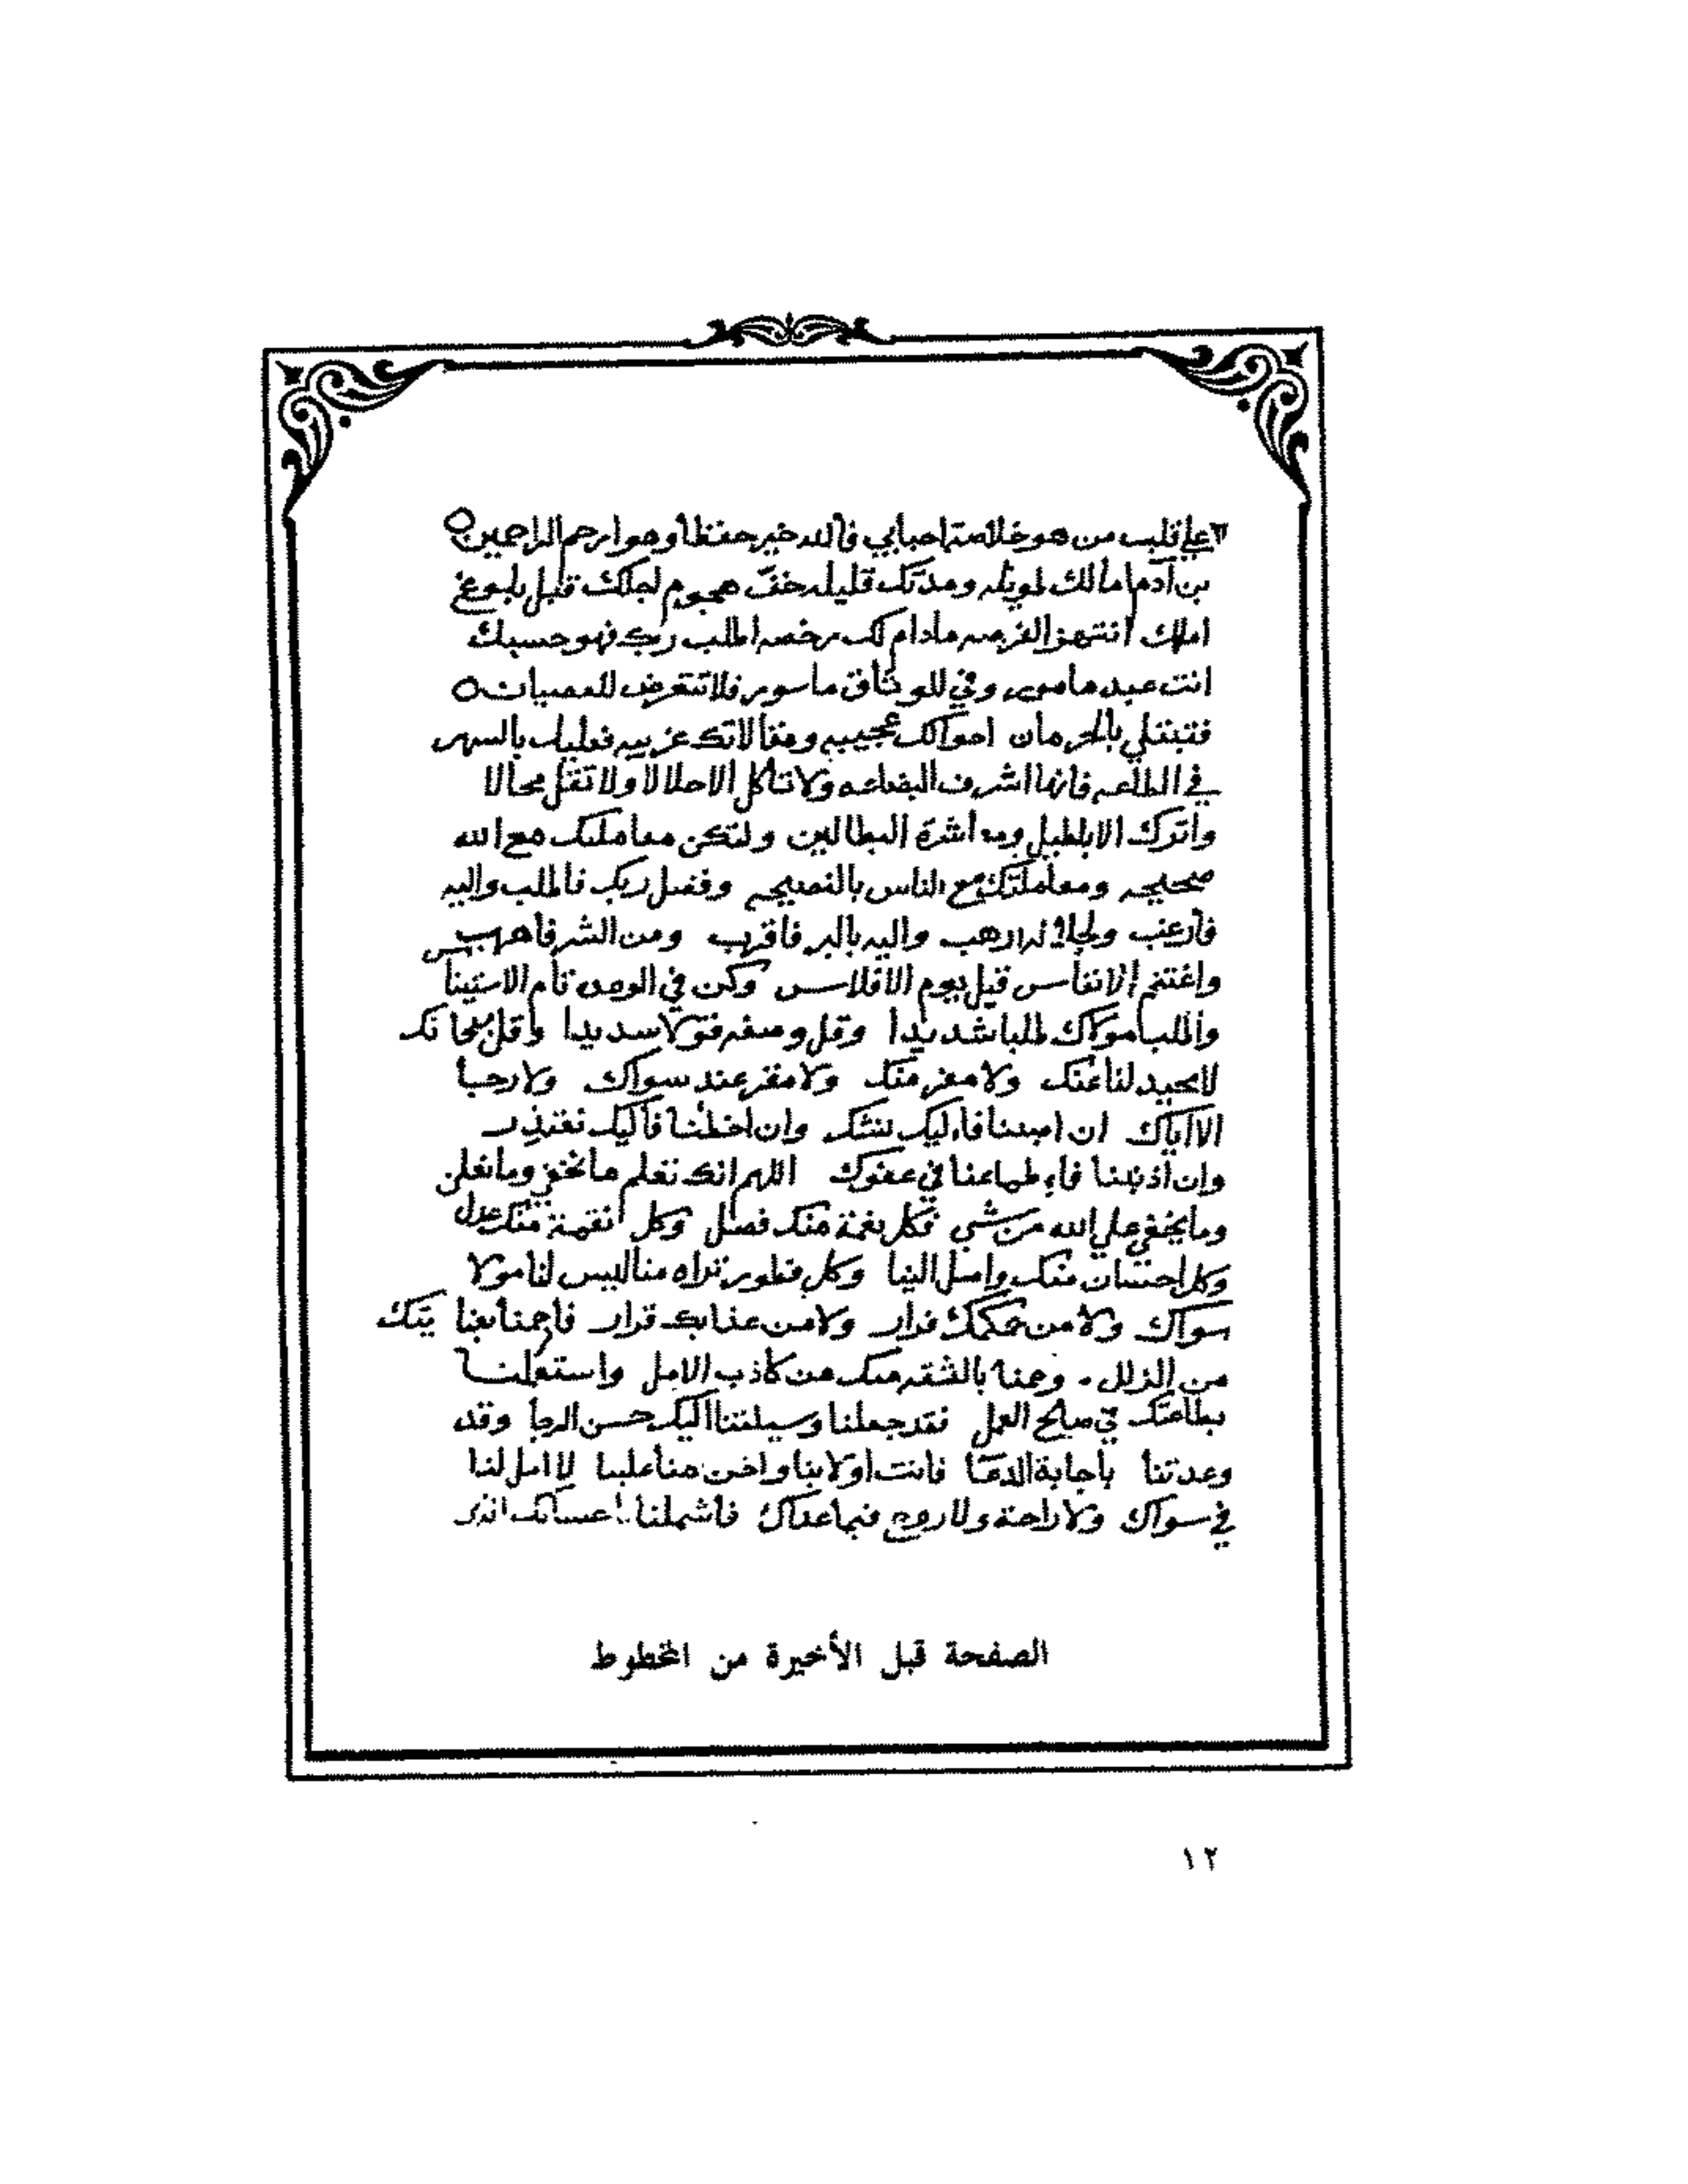 علي قلب من هو خلاصة احبابي فالله خير حفظا وهو ارحم الراحمين
بن آدم امالك طويله ومدتك قليله خف هجوم اجلك قبل بلوغ
املك انتهز الفرصه مادام لك رخصه اطلب ربك فهو حسبك
انت عبد مامور وفي للوثاق ماسور فلا تتعرض للعصيان
فتبتلي بالحرمان احوالك عجيبه ومقالاتك غريبه فعليك بالسهر
في الطاعه فانها اشرف البضاعه ولا تاكل الا حلالا ولا تقل محالا
واترك الاباطيل ومعاشرة البطالين ولتكن معاملتك مع الله
صحيحه ومعاملتك مع الناس بالنصيحه وفضل ربك فاطلب واليه
فارغب ولجلاله ارهب واليه بالبر فاقرب ومن الشر فاهرب
واغتنم الانفاس قبل يوم الافلاس وكن في الوحدة تام الاستيناس
واطلب مولاك طلبا شديدا وقل وصفه قولا سديدا وقل سبحانك
لا محيد لنا عنك ولا مفر منك ولا مقر عند سواك ولا رجا
الا اياك ان اصبنا فاليك وان اخطئنا فاليك نعتذر
وان اذنبنا فاطماعنا في عفوك اللهم انك تعلم ما نخفي وما نعلن
وما يخفي علي الله من شي فكل نعمة منك فضل وكل نقمة منك عدل
وكل احسان منك واصل الينا وكل قطور تراه منا ليس لنا مولا
سواك ولا من حكمك فرار ولا من عذابك قرار فاحمنا بعنايتك
من الزلل . وعنا بالثقه منك من كاذب الامل واستعملنا
بطاعتك في صالح العمل فقد جعلنا وسيلتنا اليك حسن الرجا وقد
وعدتنا باجابة الدعا فانت اولا بنا واحن منا علينا لا امل لنا
في سواك ولا راحة ولا روح فيما عداك فاشملنا باحسانك الذي
الصفحة قبل الأخيرة من المخطوط
١٢